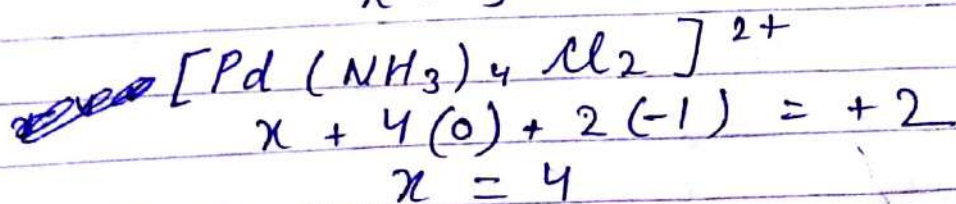 [Pd (NH3)4 Cl2]2+
x + 4(0) + 2(-1) = +2
x = 4